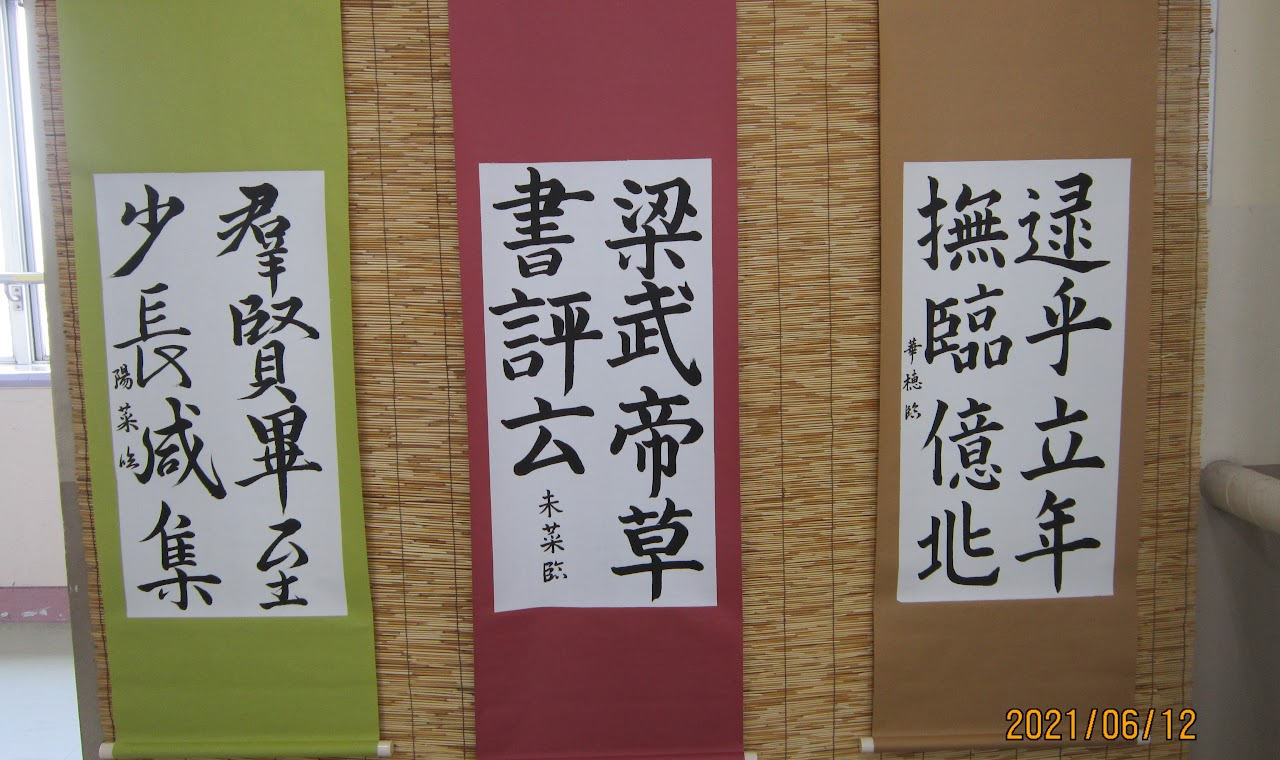 逮乎立年
撫臨億兆
華穂臨
梁武帝草
書評云
未菜臨
羣賢畢至
少長咸集
陽菜臨
2021/06/12